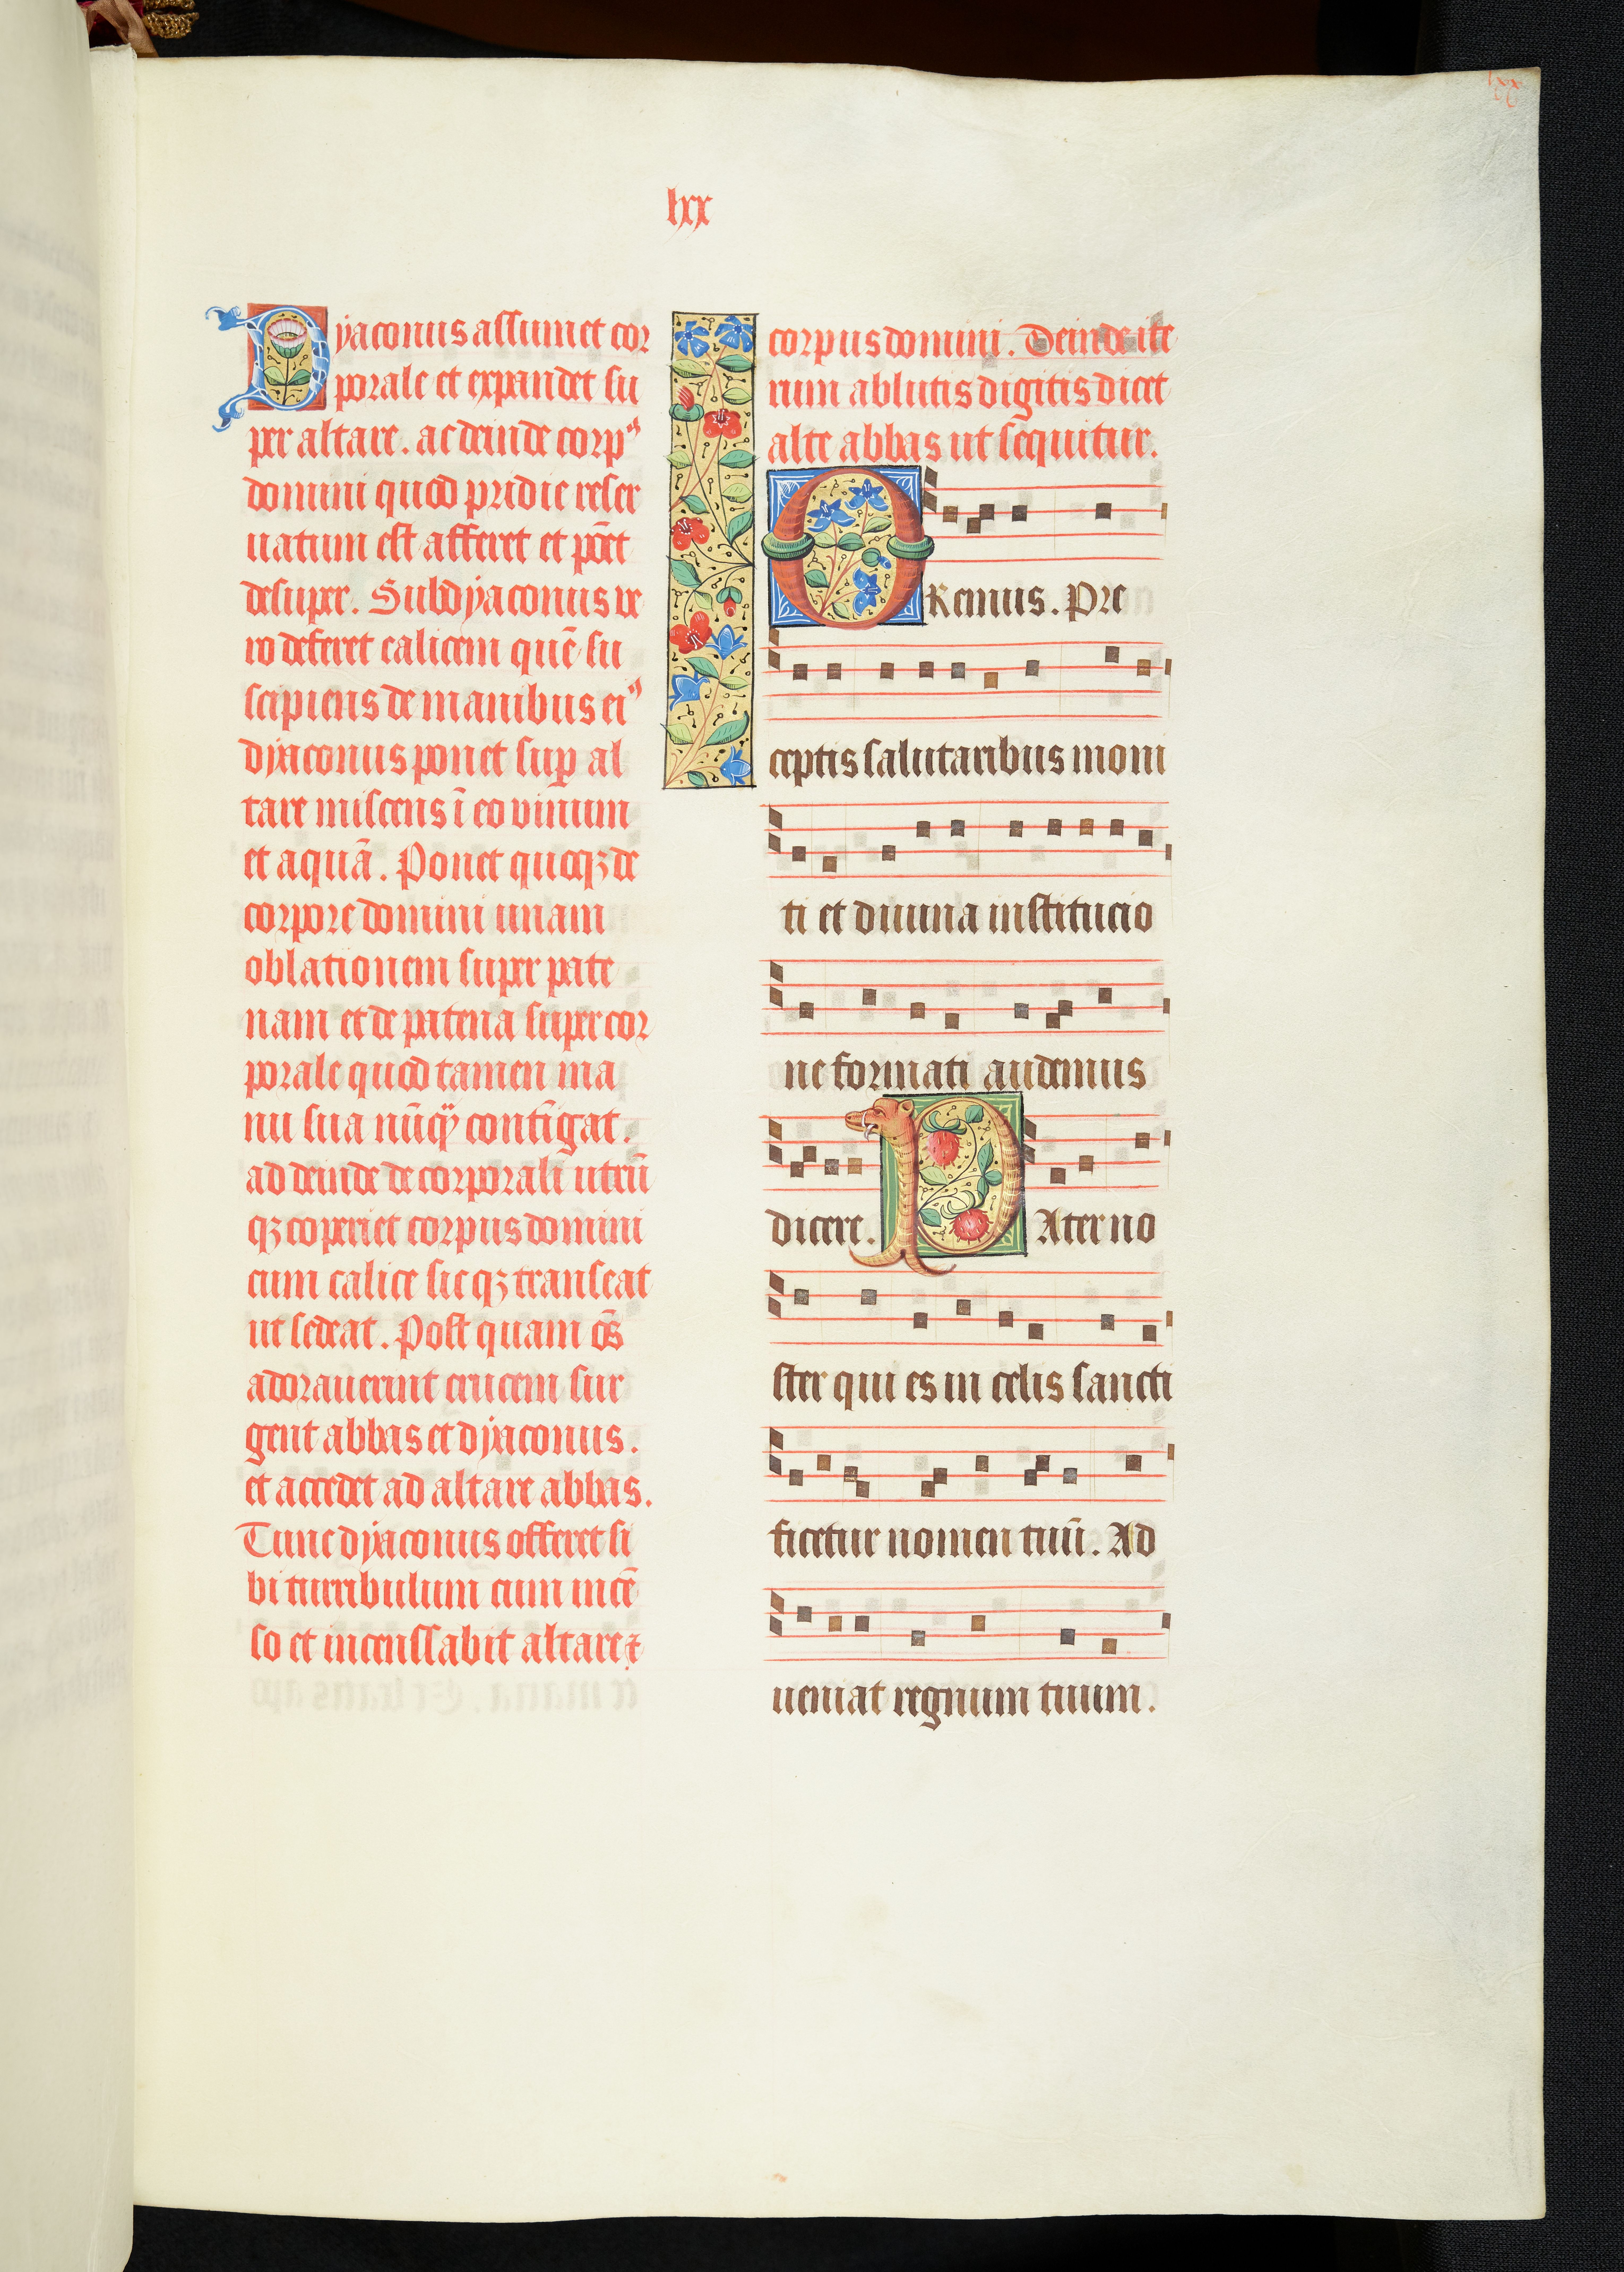 lxx
lxx
Dyaconus assumet cor
porale et expandet su
per altare. ac deinde corpꝰ
domini quod pridie reser
uatum est afferet et pōet
desuper. Subdyaconus ve
ro deferet calicem quē su
scipiens de manibus eiꝰ
dyaconus ponet suꝑ al
tare miscens ī eo vinum
et aquā. Ponet quoqꝫ de
corpore domini unam
oblationem super pate
nam et de patena super cor
porale quod tamen ma
nu sua nūqͣ contīgat.
ad deinde de corporali utrū
qꝫ coperiet corpus domini
cum calice sicqꝫ transeat
ut sedeat. Post quam oēs
adorauerint crucem sur
gent abbas et dyaconus.
et accedet ad altare abbas.
Tunc dyaconus offeret si
bi turribulum cum incē
so et incenssabit altare ⁊
corpus domini. Deinde ite
rum ablutis digitis dicet
alte abbas ut sequitur.
ORemus. Pre
ceptis salutaribus moni
ti et diuina institucio
ne formati audemus
dicere. PAter no
ster qui es in celis sancti
ficetur nomen tuū. Ad
ueniat regnum tuum.